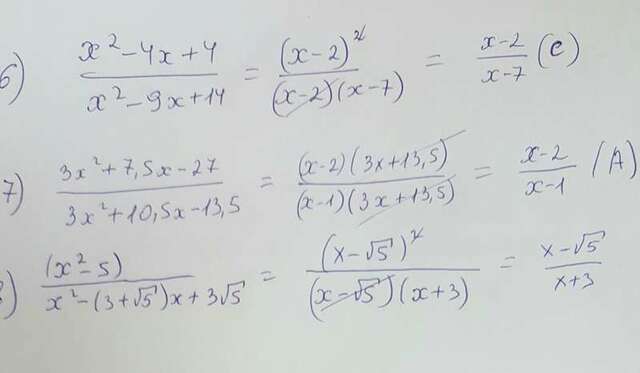 6) \frac{x^2-4x+4}{x^2-9x+14} = \frac{(x-2)^2}{(x-2)(x-7)} = \frac{x-2}{x-7} (C)
7) \frac{3x^2+7,5x-27}{3x^2+10,5x-13,5} = \frac{(x-2)(3x+13,5)}{(x-1)(3x+13,5)} = \frac{x-2}{x-1} (A)
) \frac{(x^2-5)}{x^2-(3+\sqrt{5})x+3\sqrt{5}} = \frac{(x-\sqrt{5})^2}{(x-\sqrt{5})(x+3)} = \frac{x-\sqrt{5}}{x+3}